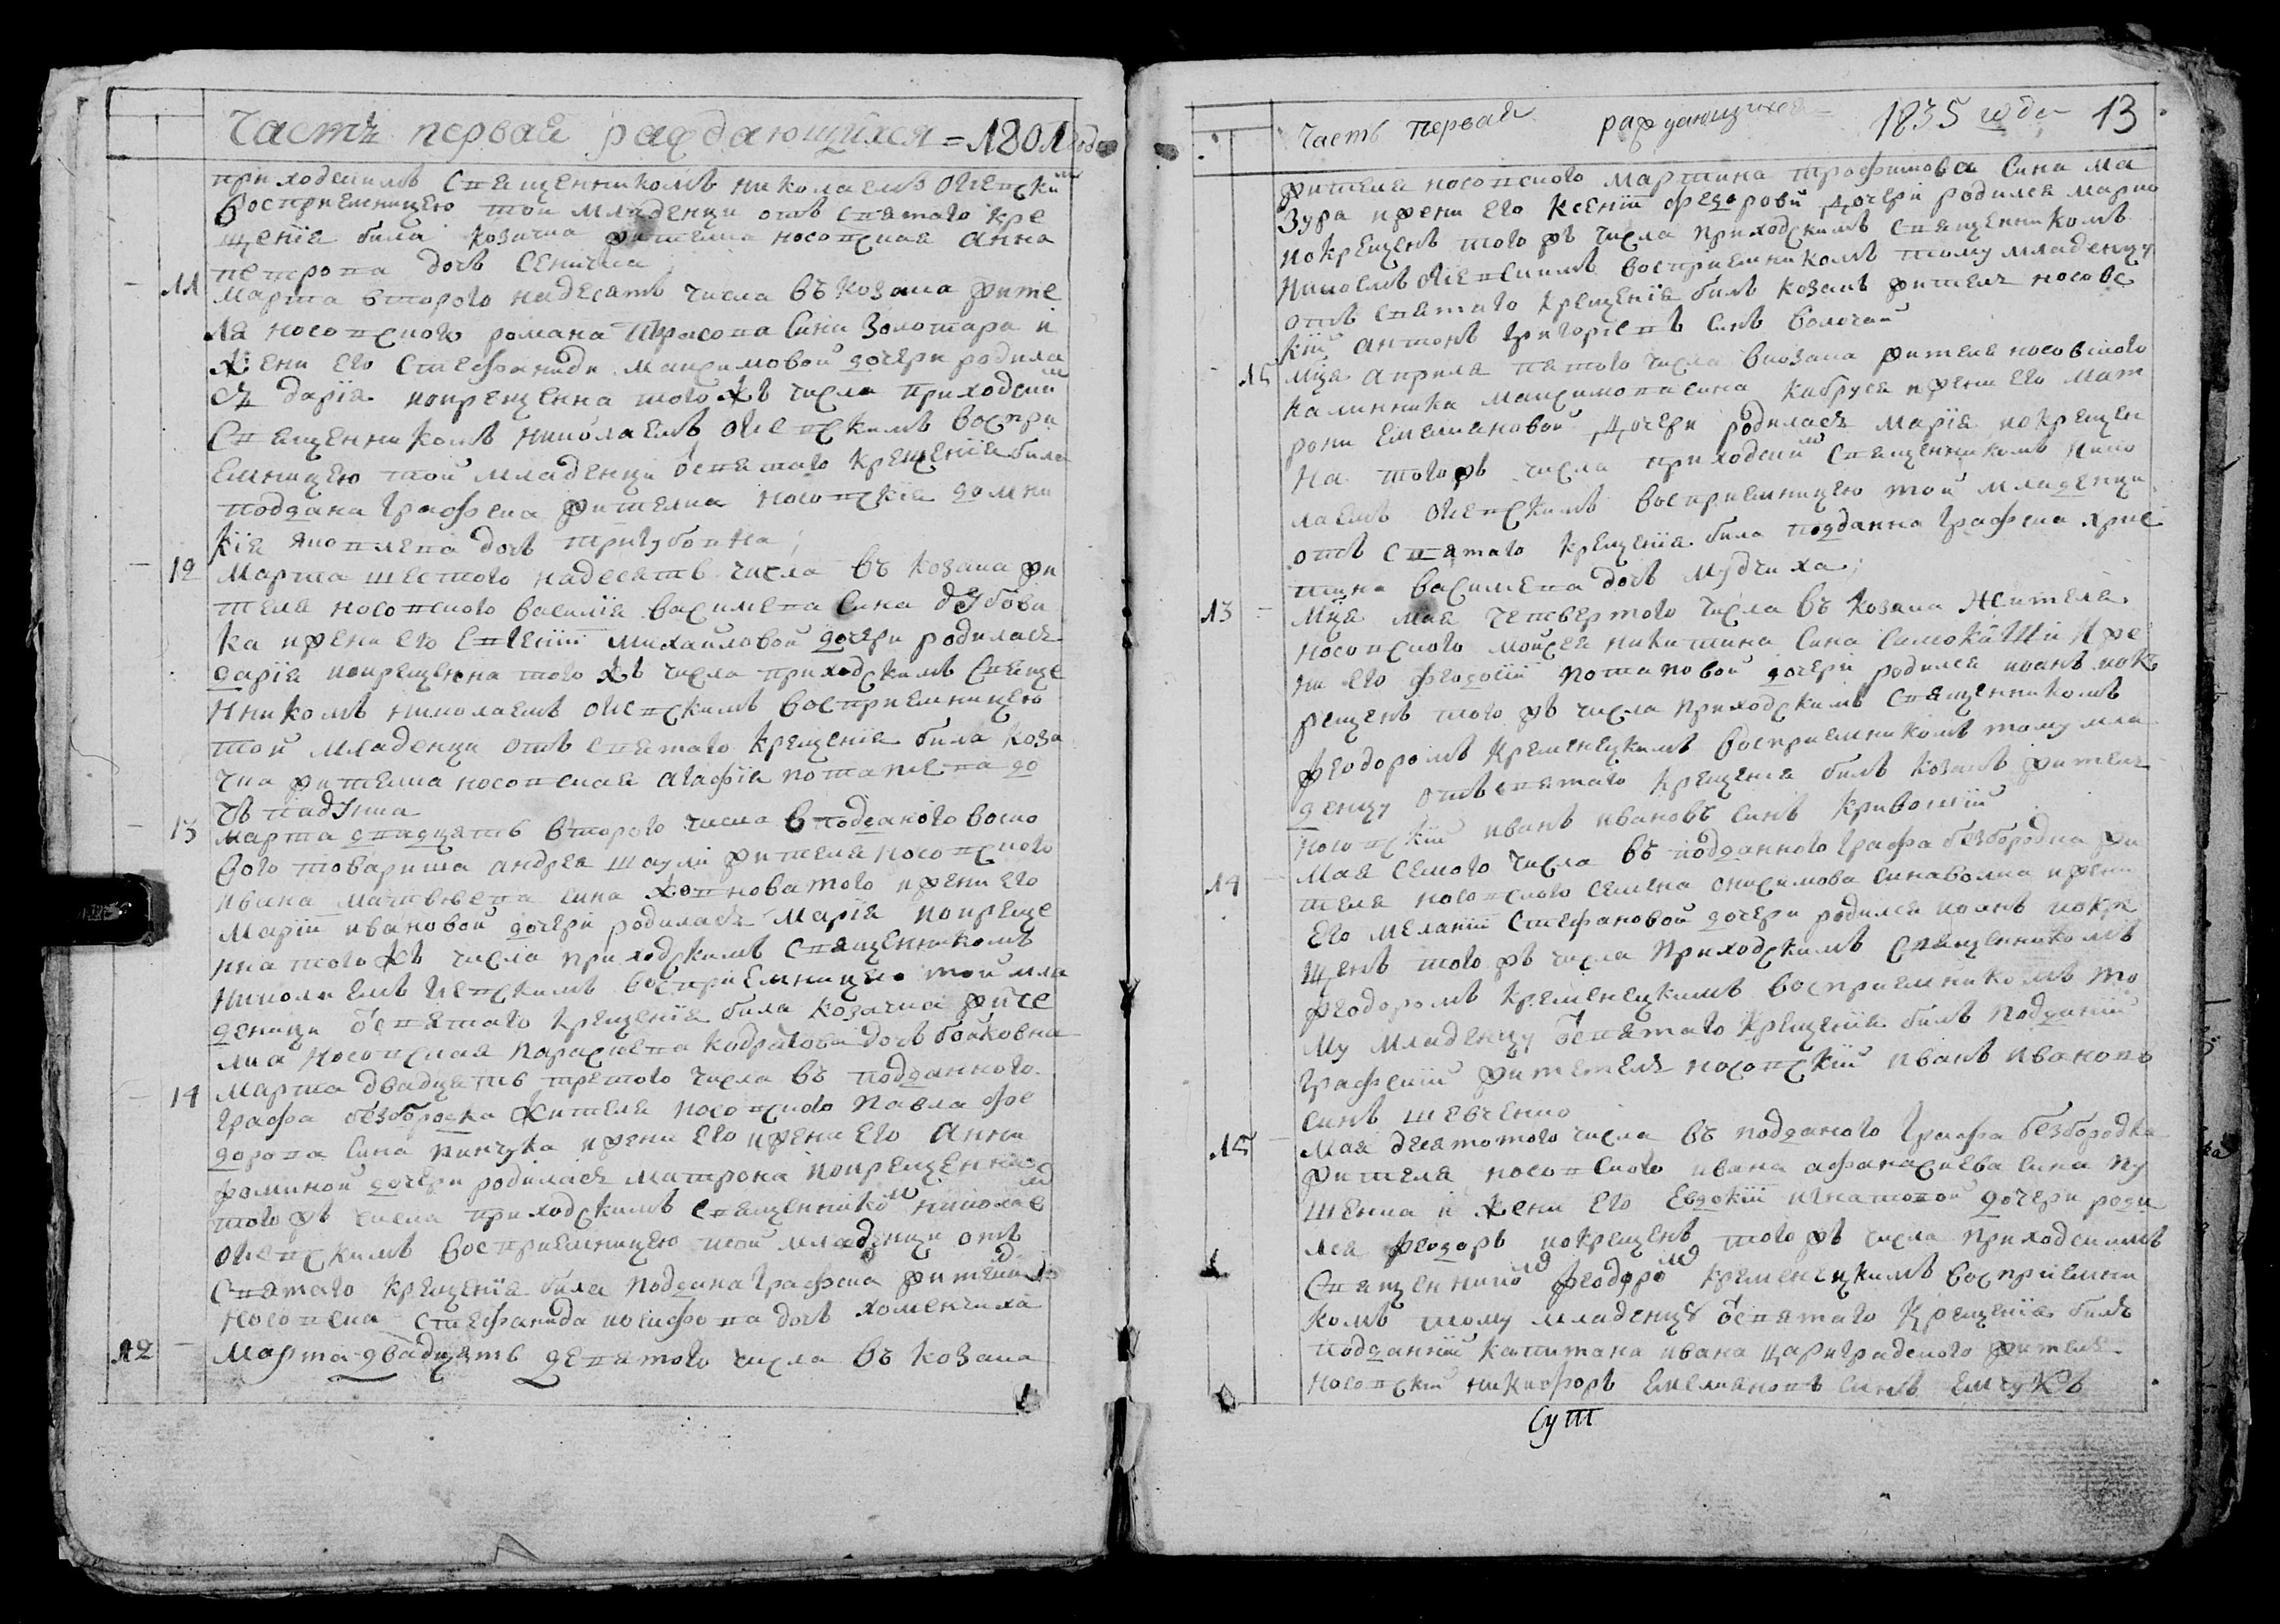 Часть первая раждающихся = 1801 года
приходскимъ священникомъ николаемъ огіевским
восприемницею той младенци отъ святаго кре
щенія била козачка жителка носовская анна
петрова дочь
11 Марта второго надесять числа въ козака жите
ля носовского романа Тарасова сина Золотара и
жени его Стефаниди Максимовой дочери родила
сь дарія и окрещенна того жъ числа приходским
Священникомъ николаемъ огіевскимъ воспри
емницею той младенци от святаго крещенія била
поддана графска жителка носовская домни
кія яковлева дочь тригубовна
12 Марта шестого надесять числа въ козака жи
теля носовского василія василиева сина дубови
ка и жени его Евгеніи михайловой дочери родилась
дарія и окрещенна того жъ числа приходскимъ Свяще
нникомъ николаемъ огіевскимъ восприемницею
той младенци отъ святаго крещенія била коза
чка жителка носовская агафія потапиева до
чь
13 Марта двадцять второго числа в поддaного войско
вого товариша андрея шаули жителя носовского
ивана матвѣева сина жовноватого и жени его
Маріи ивановой дочери родилась Марія и окреще
нна того жъ числа приходскимъ священникомъ
николаемъ огіевскимъ восприемницею той мла
денци от святаго крещенія била козачка жите
лка носовская параскева кодратова дочь бойковна
14 Марта двадцать третого числа въ подданного
графа безбородка жителя носовского павла фе
дорова сина пинчука и жени его и жени его анни
фоминой дочери родилась матрона и окрещенна
того жъ числа приходскимъ священником николае
огіевскимъ восприемницею той младенци отъ
святаго крещенія била поддана графска жителка
носовска стефанида иосифова дочь хоменчиха
12 Марта двадцять девятого числа въ козака
Часть первая раждающихся 1835 года 13
жителя носовского мартина трофимова сина ма
зура и жени его ксеніи федоровой дочери родился марко
и окрещенъ того жъ числа приходскимъ священникомъ
николаемъ огіевскимъ восприемникомъ тому младенцу
отъ святаго крещенія билъ козакъ житель носовс
кій антонъ григориевъ синъ волочай
15 Мця априля пятого числа в козака жителя носовского
калинника максимова сина кабруся и жени его мат
рони емелиановой дочери родилась марія и окрещен
на того жъ числа приходским священникомъ нико
лаемъ огіевскимъ восприемницею той младенци
отъ святаго крещенія била подданна графска хрис
тина василиева дочь мудчиха
13 Мця мая четвертого числа въ козака жителя
носовского мойсея никитина сина самокиши и же
ни его феодосіи потаповой дочери родился иоанъ и ок
рещенъ того жъ числа приходскимъ священникомъ
феодоромъ кременецкимъ восприемникомъ тому мла
денцу отъ святаго крещенія билъ козакъ житель
носовскій иванъ ивановъ синъ кривошій
14 Мая семого числа въ подданного графа безбородка жи
теля носовского семена онисимова сина волка и жени
его меланіи стефановой дочери родился иоанъ и окре
щенъ того жъ числа приходскимъ священникомъ
феодоромъ кременецкимъ восприемникомъ то
му младенцу от святаго крещенія билъ подданій
графскій житетель носовскій иванъ ивановъ
синъ шевченко
15 Мая десятотого числа въ подданого графа безбородка
жителя носовского ивана афанасиева сина пу
шенка и жени его Евдокіи игнатовой дочери роди
лся феодоръ и окрещенъ того жъ числа приходскимъ
священником феодором кременецкимъ восприемни
комъ тому младенцу от святаго крещенія билъ
подданній капитана ивана цариградского житель
носовскій никифоръ емелиановъ синъ емчукъ